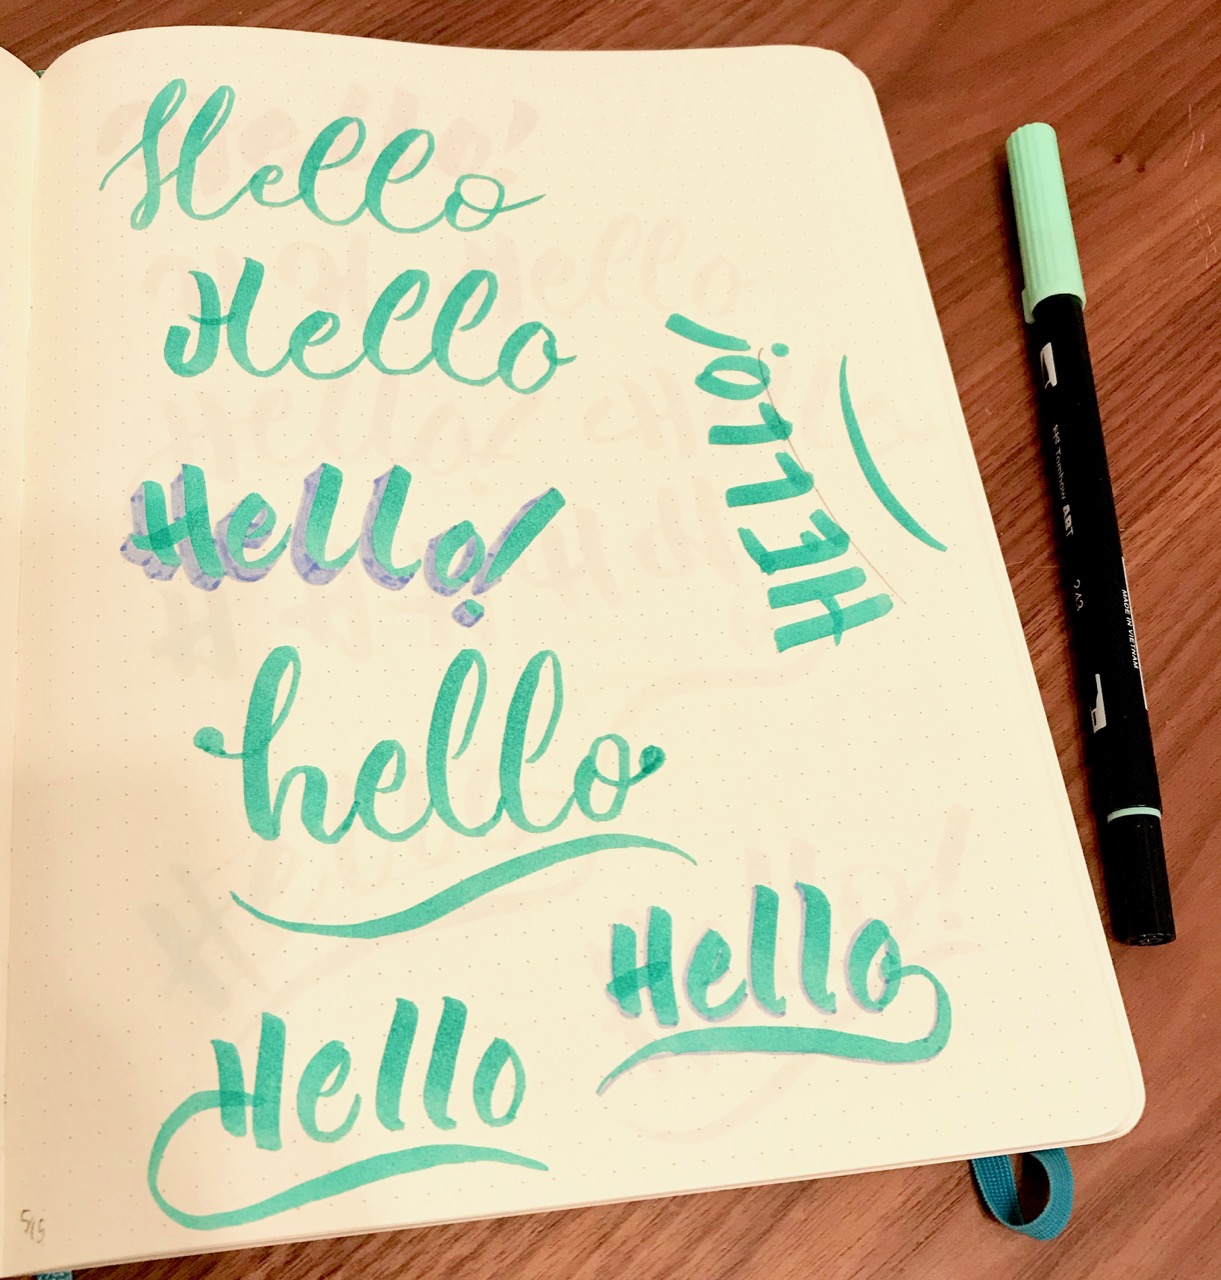 Hello
Hello
HELLO!
Hello!
hello
Hello
Hello
5/15
Tombow ABT
243
MADE IN VIETNAM